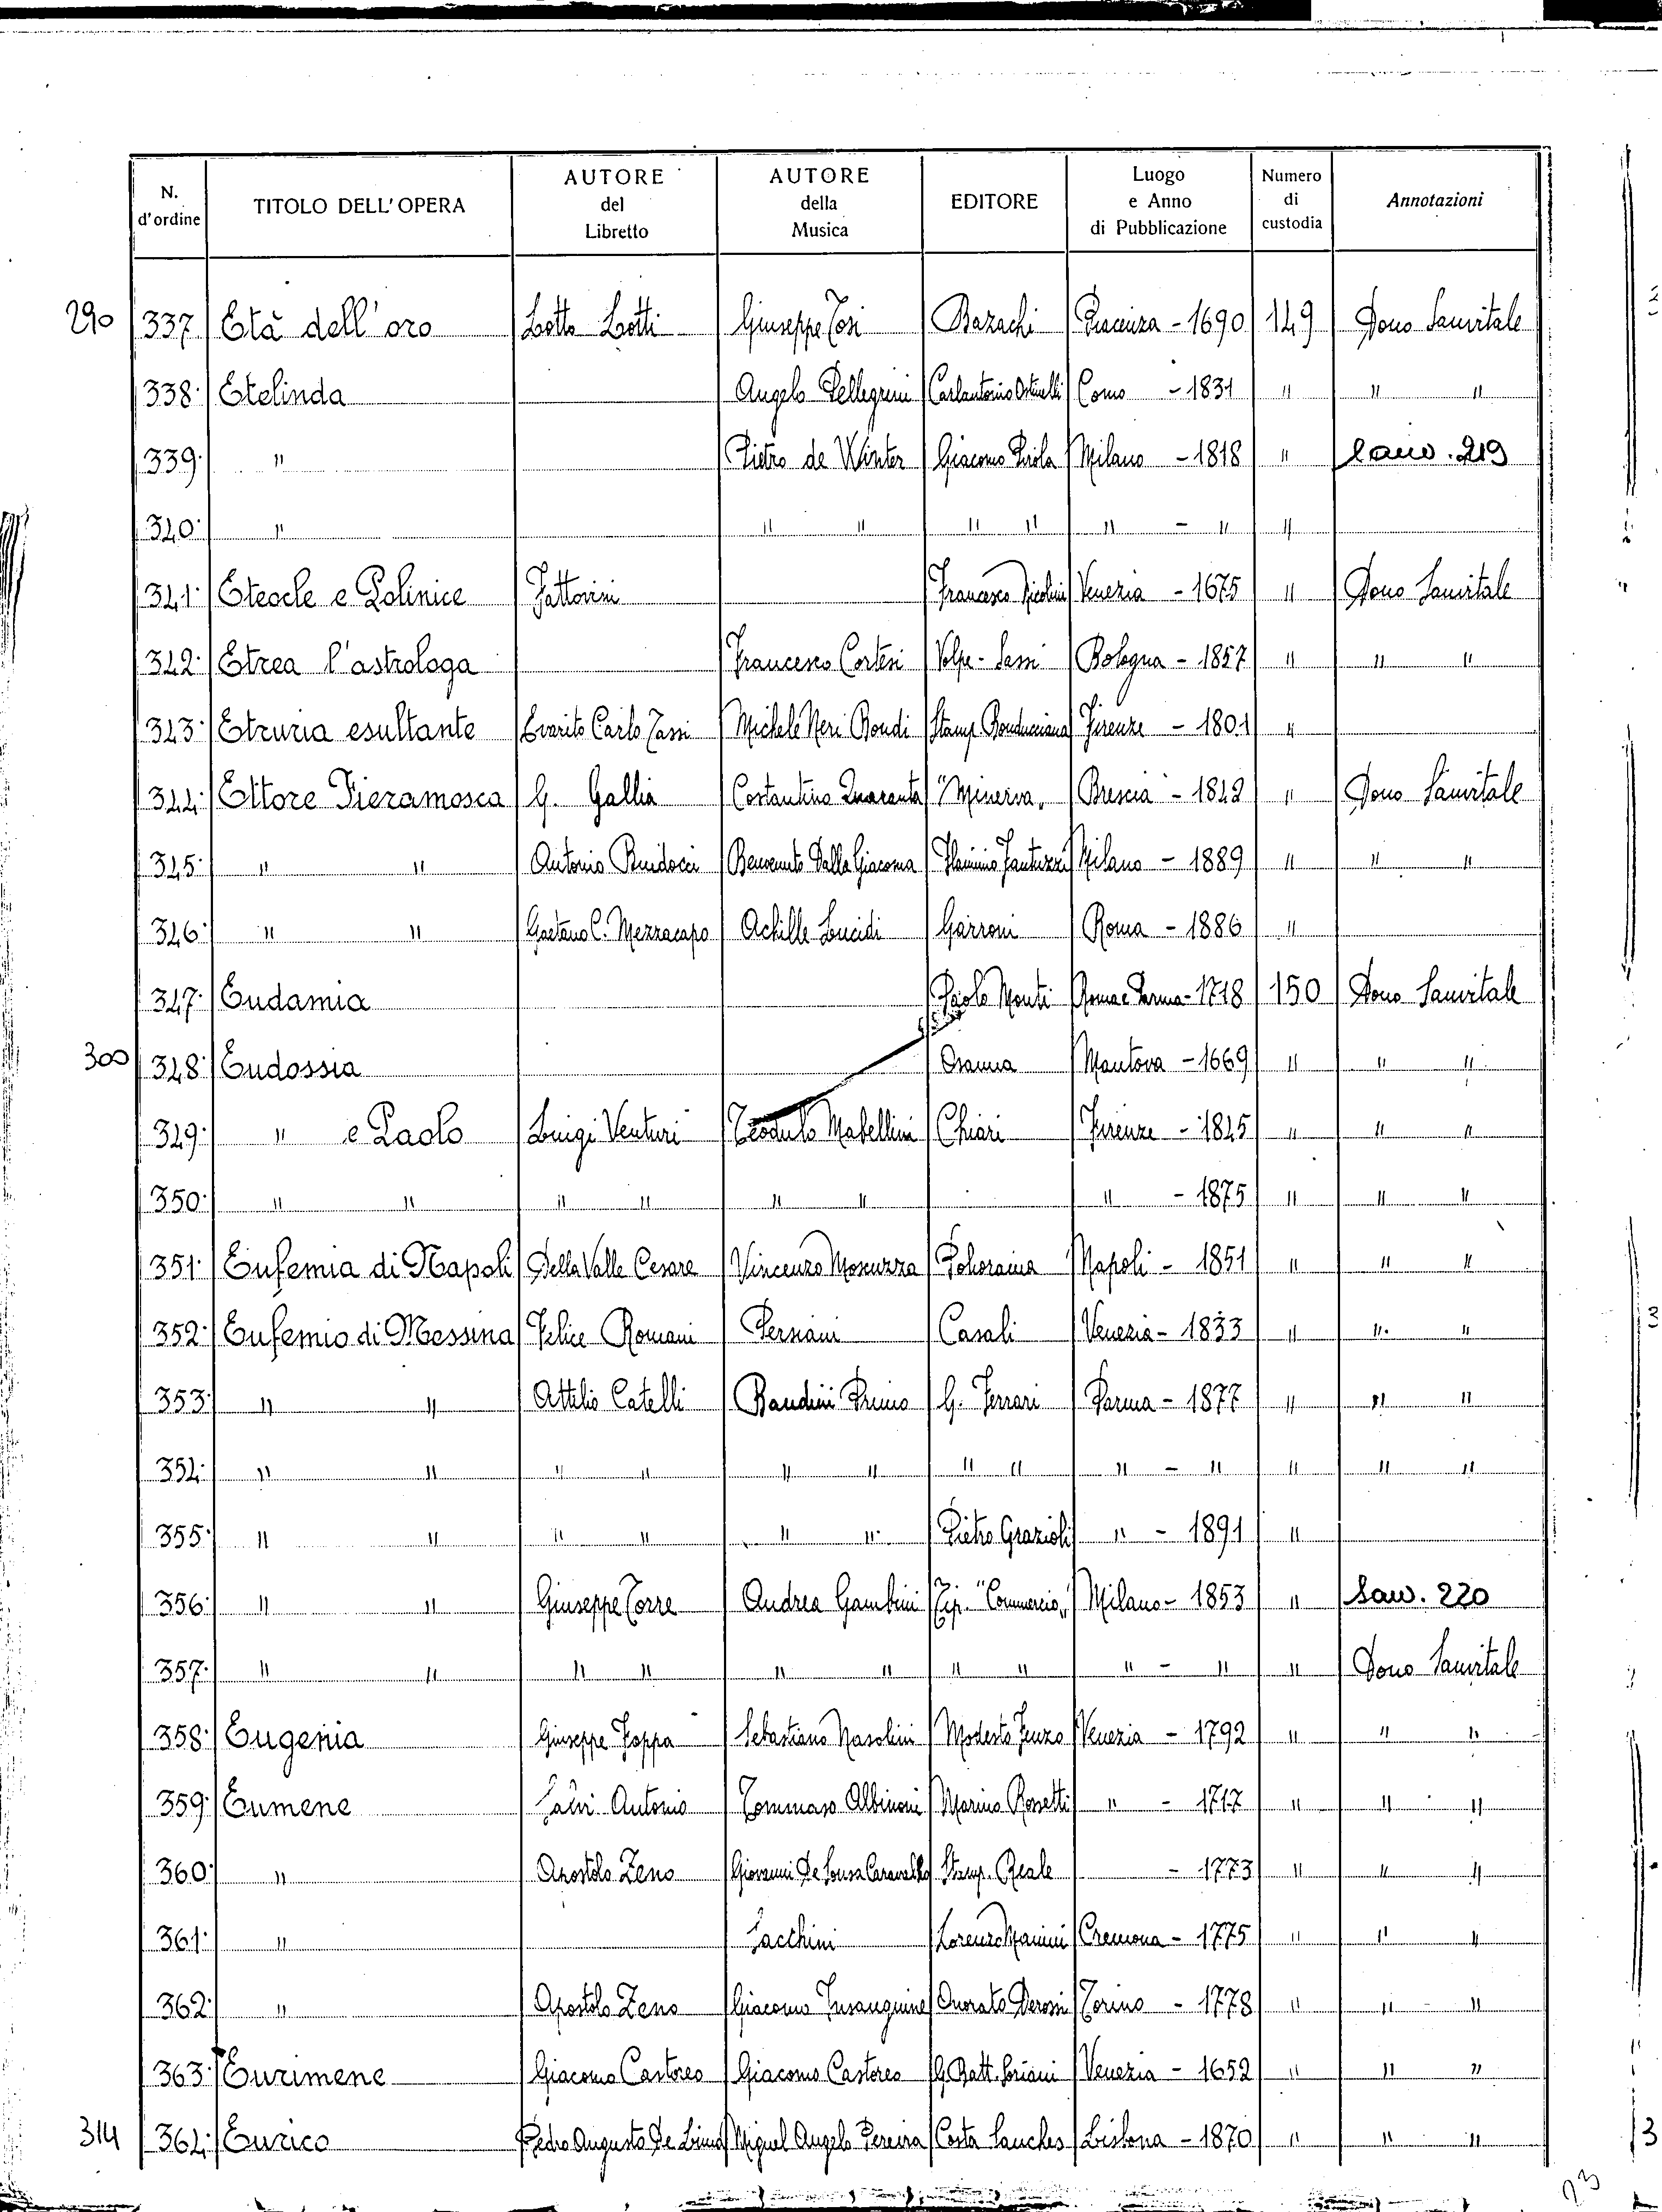 N. d'ordine | TITOLO DELL'OPERA | AUTORE del Libretto | AUTORE della Musica | EDITORE | Luogo e Anno di Pubblicazione | Numero di custodia | Annotazioni
290 337. Età dell'oro | Lotto Lotti | Giuseppe Tosi | Bazachi | Piacenza - 1690 | 149 | Dono Sanvitale
338. Etelinda | | Angelo Pellegrini | Carlantonio Ostinelli | Como - 1831 | " | " "
339. " | | Pietro de Winter | Giacomo Pirola | Milano - 1818 | " | 219
340. " | | " " | " " | " - " | "
341. Eteocle e Polinice | Fattorini | | Francesco Nicolini | Venezia - 1675 | " | Dono Sanvitale
342. Etrea l'astrologa | | Francesco Cortesi | Volpe - Sassi | Bologna - 1857 | " | " "
343. Etruria esultante | Evarito Carlo Tassi | Michele Neri Bondi | Stamp. Bonducciana | Firenze - 1801 | "
344. Ettore Fieramosca | G. Gallia | Costantino Quaranta | "Minerva" | Brescia - 1842 | " | Dono Sanvitale
345. " " | Antonio | Benvenuto Dalla Giacoma | Flaminio Fantuzzi | Milano - 1889 | " | " "
346. " " | Gaetano C. Mezzacapo | Achille Lucidi | Garroni | Roma - 1886 | "
347. Eudamia | | | Paolo Monti | Roma e Parma - 1718 | 150 | Dono Sanvitale
300 348. Eudossia | | | Osanna | Mantova - 1669 | " | " "
349. " e Paolo | Luigi Venturi | Teodulo Mabellini | Chiari | Firenze - 1845 | " | " "
350. " " | " " | " " | | " - 1875 | " | " "
351. Eufemia di Napoli | Della Valle Cesare | Vincenzo Moscuzza | | Napoli - 1851 | " | " "
352. Eufemio di Messina | Felice Romani | Persiani | Casali | Venezia - 1833 | " | " "
353. " " | Attilio Catelli | Bandini Primo | G. Ferrari | Parma - 1877 | " | " "
354. " " | " " | " " | " " | " - " | " | " "
355. " " | " " | " " | Pietro Grazioli | " - 1891 | "
356. " " | Giuseppe Torre | Andrea Gambini | Tip. "Commercio" | Milano - 1853 | " | 220
357. " " | " " | " " | " " | " - " | " | Dono Sanvitale
358. Eugenia | Giuseppe Foppa | Sebastiano Nasolini | Modesto Fenzo | Venezia - 1792 | " | " "
359. Eumene | Salvi Antonio | Tommaso Albinoni | Marino Rossetti | " - 1717 | " | " "
360. " | Apostolo Zeno | Giovanni De Sousa Caravalho | Stamp. Reale | - 1773 | " | " "
361. " | | Sacchini | Lorenzo Manini | Cremona - 1775 | " | " "
362. " | Apostolo Zeno | Giacomo Insanguine | Onorato Derossi | Torino - 1778 | " | " "
363. Eurimene | Giacomo Castoreo | Giacomo Castoreo | G. Batt. | Venezia - 1652 | " | " "
314 364. Eurico | Pedro Augusto De Lima | Miguel Angelo Pereira | Costa Sanches | Lisbona - 1870 | " | " "
93